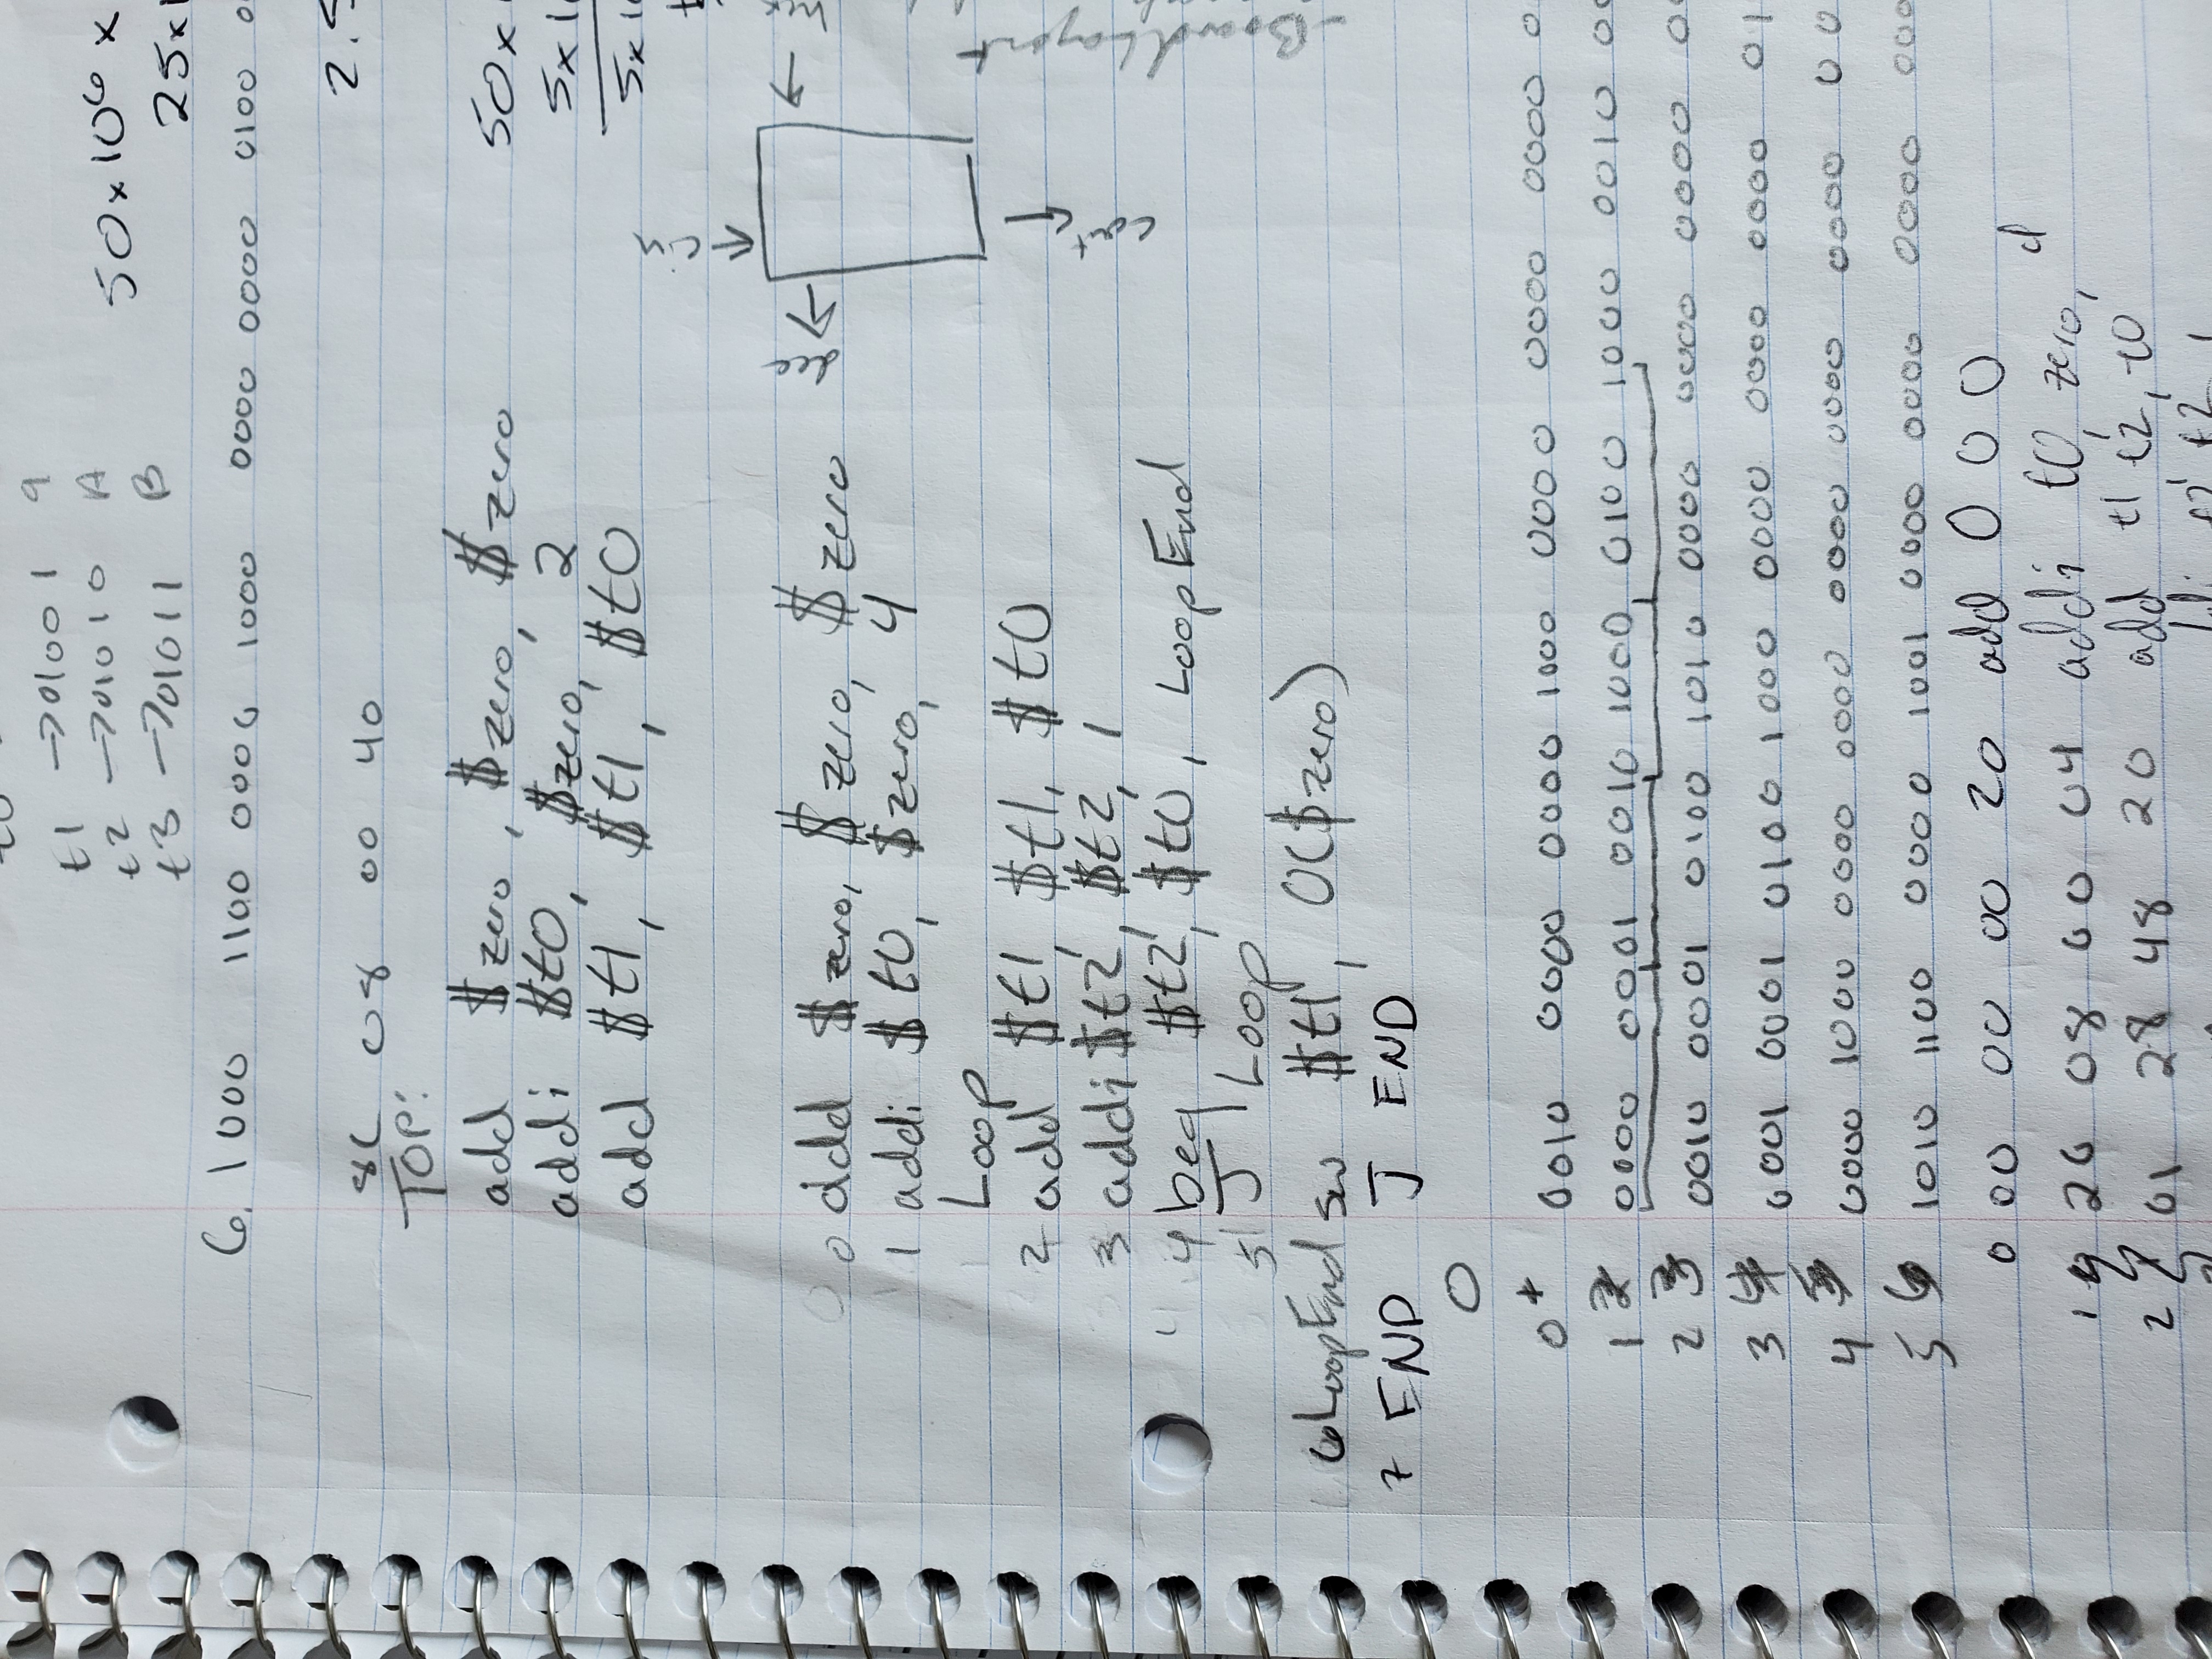 t0
t1 → 01001 9
t2 → 01010 A
t3 → 01011 B
50x10⁶ x
25x1
6. 1000 1100 0000 1000 0000 0000 0100 0
2.5
8C 08 00 40
TOP:
add $zero, $zero, $zero
50x
addi $t0, $zero, 2
5x10
add $t1, $t1, $t0
5x10
cin
0 add $zero, $zero, $zero
dec
1 addi $t0, $zero, 4
Loop
2 add $t1, $t1, $t0
3 addi $t2, $t2, 1
cout
4 beq $t2, $t0, LoopEnd
5 J Loop
- Board Layout
6 LoopEnd sw $t1, 0($zero)
7 END J END
0
0 0010 0000 0000 1000 0000 0000 0000 0
1 2 0000 0001 0010 1000 0100 1000 0010 00
2 3 0010 0001 0100 1010 0000 0000 0000 00
3 4 0001 0001 0100 1000 0000 0000 0000 01
4 5 0000 1000 0000 0000 0000 0000 0000 00
5 6 1010 1100 0000 1001 0000 0000 0000 000
0 00 00 00 20 add 0 0 0
1 20 08 00 04 addi t0, zero,
2 01 28 48 20 add t1 t2, t0
t2, t2 1